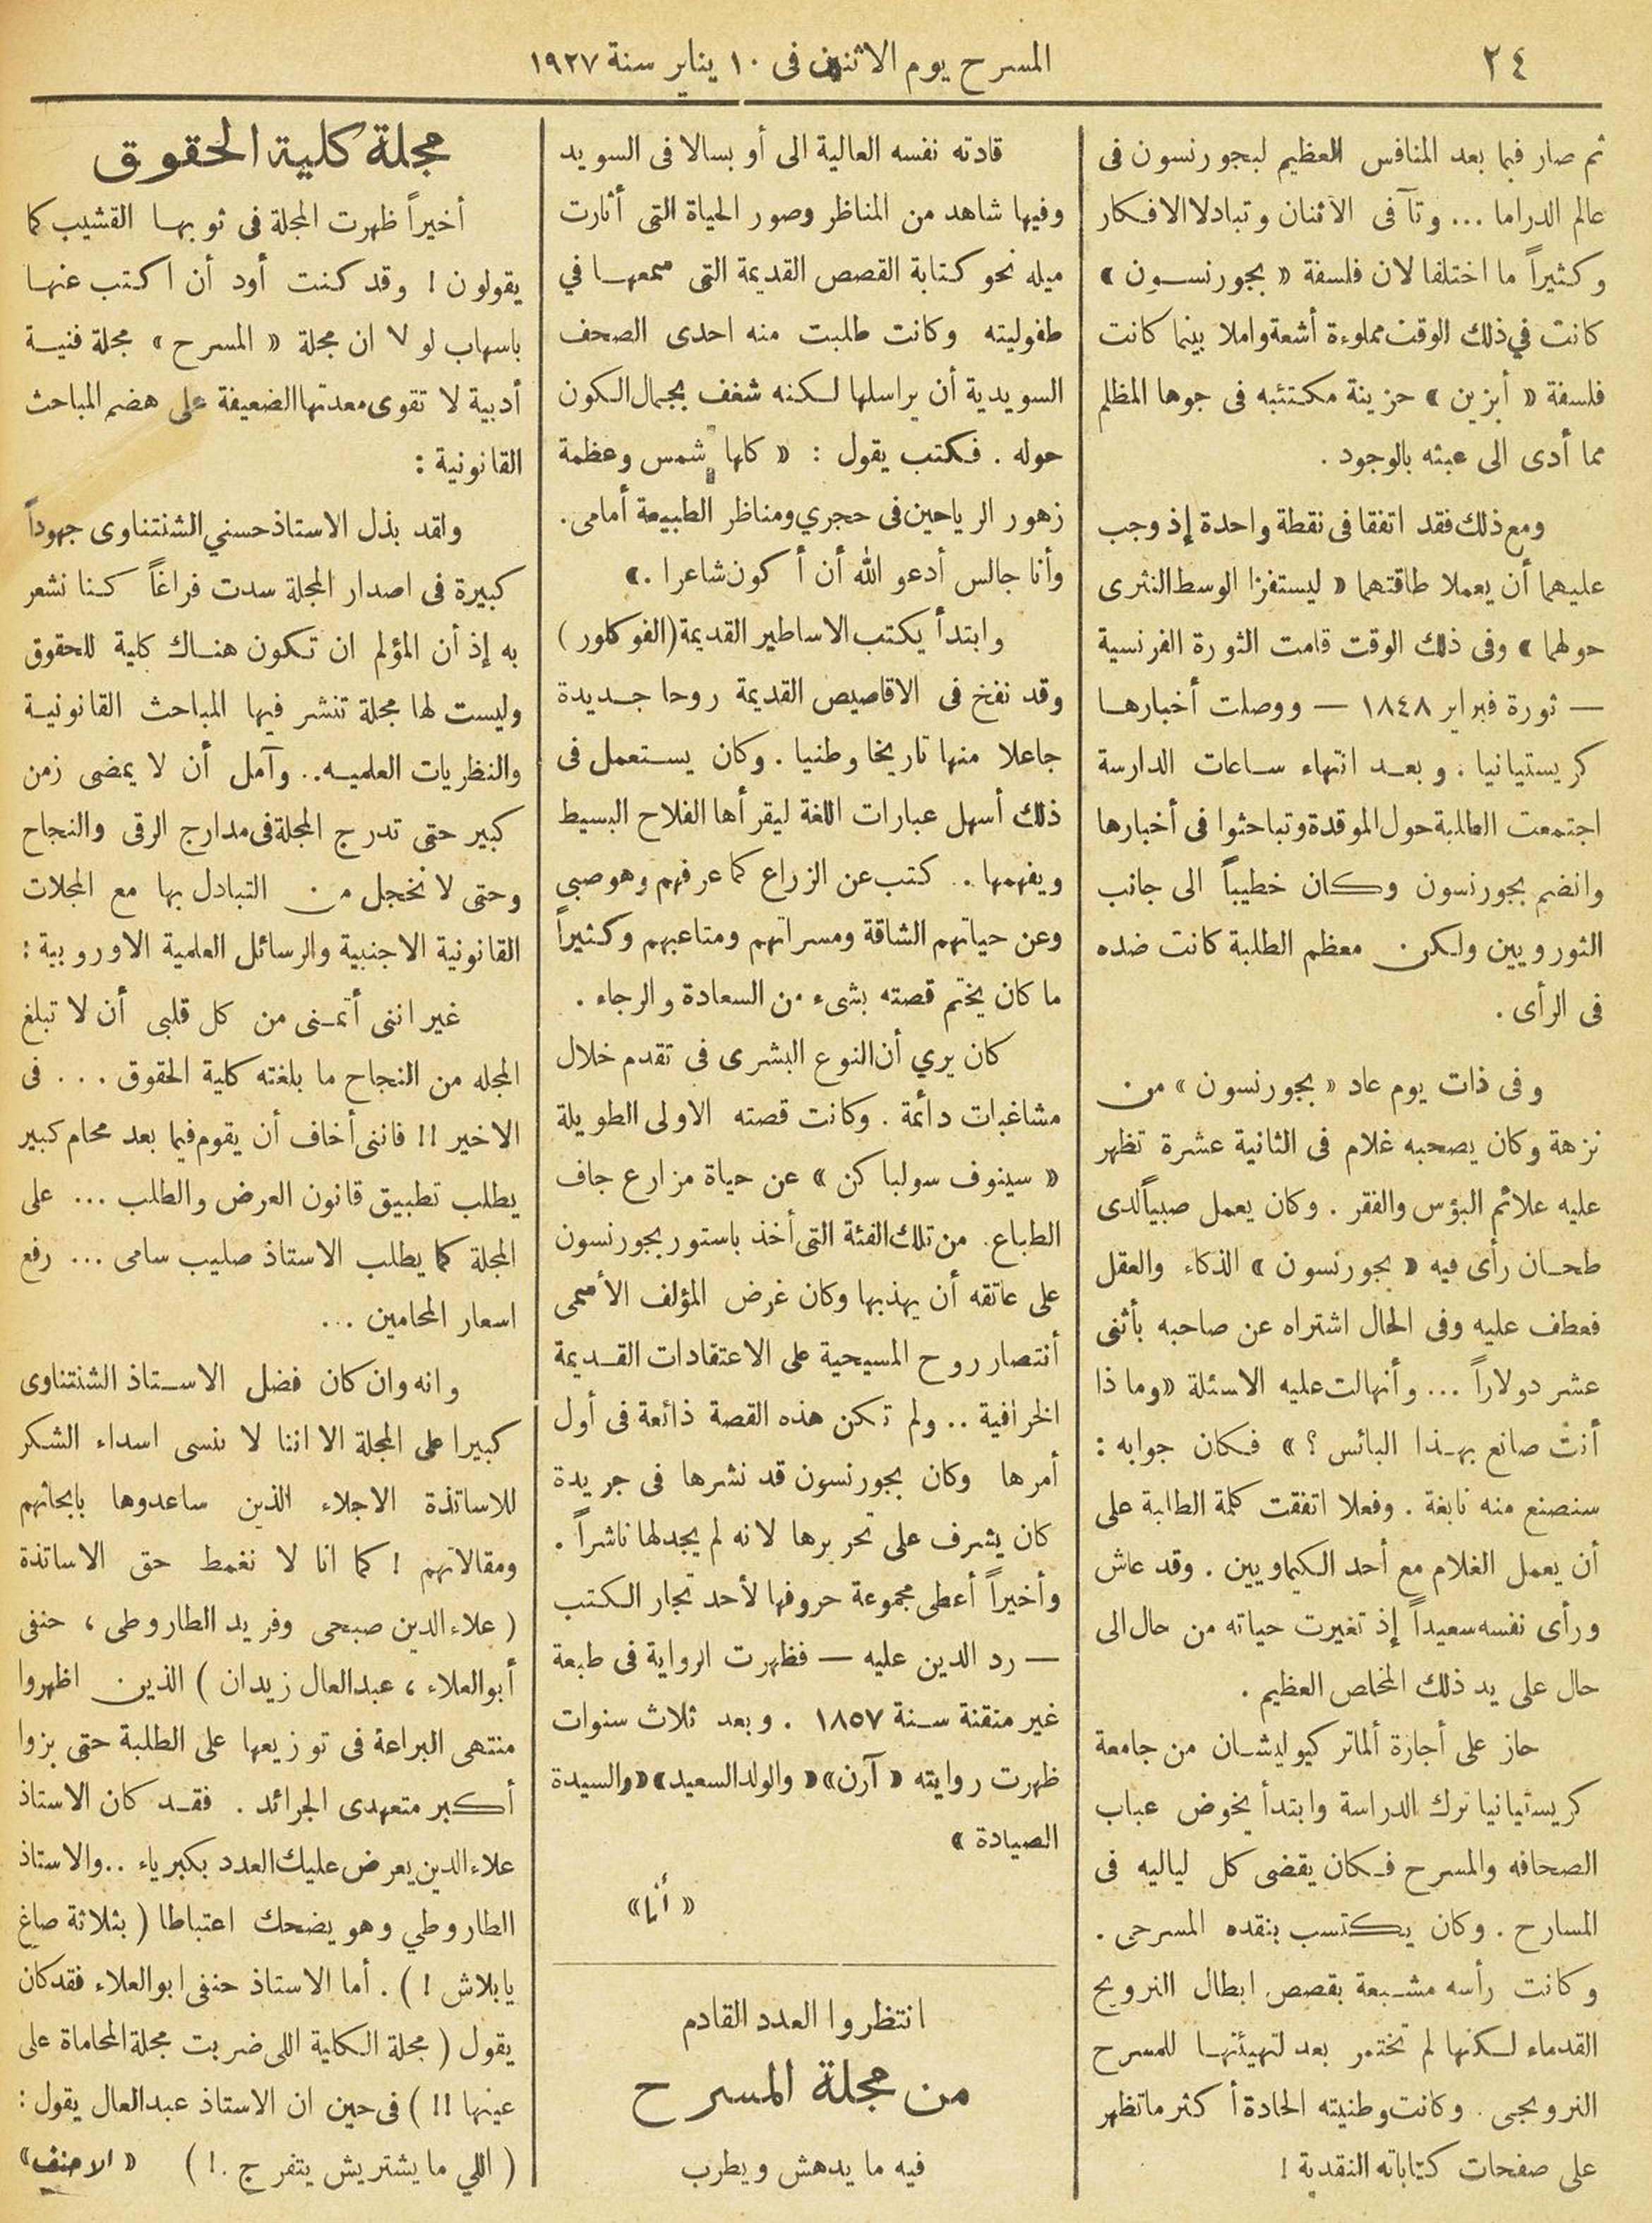 ٢٤
المسرح يوم الاثنين فى ١٠ يناير سنة ١٩٢٧
ثم صار فيما بعد المنافس العظيم لبجورنسون فى
عالم الدراما ... وتآفى الاثنان وتبادلا الافكار
وكثيراً ما اختلفا لان فلسفة « بجورنسون »
كانت في ذلك الوقت مملوءة أشعة واملا بينما كانت
فلسفة « أبزين » حزينة مكتئبه فى جوها المظلم
مما أدى الى عبثه بالوجود .
ومع ذلك فقد اتفقا فى نقطة واحدة إذ وجب
عليهما أن يعملا طاقتهما « ليستفزا الوسط النثرى
حولهما » وفى ذلك الوقت قامت الثورة الفرنسية
— ثورة فبراير ١٨٤٨ — ووصلت أخبارها
كريستيانيا . وبعد انتهاء ساعات الدارسة
اجتمعت الطلبة حول الموقدة وتباحثوا فى أخبارها
وانضم بجورنسون وكان خطيباً الى جانب
الثورويين ولكن معظم الطلبة كانت ضده
فى الرأى .
وفى ذات يوم عاد « بجورنسون » من
نزهة وكان يصحبه غلام فى الثانية عشرة تظهر
عليه علائم البؤس والفقر . وكان يعمل صبياً لدى
طحان رأى فيه « بجورنسون » الذكاء والعقل
فعطف عليه وفى الحال اشتراه عن صاحبه بأثنى
عشر دولاراً ... وأنهالت عليه الاسئلة « وماذا
أنت صانع بهذا البائس ؟ » فكان جوابه :
سنصنع منه نابغة . وفعلا اتفقت كلمة الطلبة على
أن يعمل الغلام مع أحد الكيماويين . وقد عاش
ورأى نفسه سعيداً إذ تغيرت حياته من حال الى
حال على يد ذلك المخلص العظيم .
حاز على أجازة ألماتر كيوليشان من جامعة
كريستيانيا ترك الدراسة وابتدأ يخوض عباب
الصحافه والمسرح فكان يقضى كل لياليه فى
المسارح . وكان يكتسب بنقده المسرحى .
وكانت رأسه مشبعة بقصص ابطال النرويج
القدماء لكنها لم تختمر بعد لتهيئتها للمسرح
النرويجى . وكانت وطنيته الحادة أكثر ما تظهر
على صفحات كتاباته النقدية !
قادته نفسه العالية الى أوبسالا فى السويد
وفيها شاهد من المناظر وصور الحياة التى أثارت
ميله نحو كتابة القصص القديمة التى سمعها في
طفوليته وكانت طلبت منه احدى الصحف
السويدية أن يراسلها لكنه شغف بجمال الكون
حوله . فكتب يقول : « كلها شمس وعظمة
زهور الرياحين فى حجري ومناظر الطبيعة أمامى .
وأنا جالس أدعو الله أن أكون شاعرا . »
وابتدأ يكتب الاساطير القديمة ( الفوكلور )
وقد نفخ فى الاقاصيص القديمة روحا جديدة
جاعلا منها تاريخا وطنيا . وكان يستعمل فى
ذلك أسهل عبارات اللغة ليقرأها الفلاح البسيط
ويفهمها .. كتب عن الزراع كما عرفهم وهو صبى
وعن حياتهم الشاقة ومسراتهم ومتاعبهم وكثيراً
ما كان يختم قصته بشىء من السعادة والرجاء .
كان يري أن النوع البشرى فى تقدم خلال
مشاغبات دائمة . وكانت قصته الاولى الطويلة
« سينوف سولباكن » عن حياة مزارع جاف
الطباع . من تلك الفئة التى أخذ باستور بجورنسون
على عاتقه أن يهذبها وكان غرض المؤلف الأسمى
أنتصار روح المسيحية على الاعتقادات القديمة
الخرافية .. ولم تكن هذه القصة ذائعة فى أول
أمرها وكان بجورنسون قد نشرها فى جريدة
كان يشرف على تحريرها لانه لم يجد لها ناشراً .
وأخيراً أعطى مجموعة حروفها لأحد تجار الكتب
— رد الدين عليه — فظهرت الرواية فى طبعة
غير متقنة سنة ١٨٥٧ . وبعد ثلاث سنوات
ظهرت روايته « آرن » « والولد السعيد » « والسيدة
الصيادة »
« أنا »
انتظروا العدد القادم
من مجلة المسرح
فيه ما يدهش ويطرب
مجلة كلية الحقوق
أخيراً ظهرت المجلة فى ثوبها القشيب كما
يقولون ! وقد كنت أود أن اكتب عنها
باسهاب لولا ان مجلة « المسرح » مجلة فنية
أدبية لا تقوى معدتها الضعيفة على هضم المباحث
القانونية :
ولقد بذل الاستاذ حسني الشنتناوى جهوداً
كبيرة فى اصدار المجلة سدت فراغاً كنا نشعر
به إذ أن المؤلم ان تكون هناك كلية للحقوق
وليست لها مجلة تنشر فيها المباحث القانونية
والنظريات العلميه .. وآمل أن لا يمضى زمن
كبير حتى تدرج المجلة فى مدارج الرقى والنجاح
وحتى لا نخجل من التبادل بها مع المجلات
القانونية الاجنبية والرسائل العلمية الاوروبية :
غير اننى أتمنى من كل قلبى أن لا تبلغ
المجله من النجاح ما بلغته كلية الحقوق ... فى
الاخير !! فاننى أخاف أن يقوم فيما بعد محام كبير
يطلب تطبيق قانون العرض والطلب ... على
المجلة كما يطلب الاستاذ صليب سامى ... رفع
اسعار المحامين ...
وانه وان كان فضل الاستاذ الشنتناوى
كبيرا على المجلة الا اننا لا ننسى اسداء الشكر
للاساتذة الاجلاء الذين ساعدوها بابحاثهم
ومقالاتهم ! كما انا لا نغمط حق الاساتذة
( علاء الدين صبحى وفريد الطاروطى ، حنفى
أبو العلاء ، عبد العال زيدان ) الذين اظهروا
منتهى البراعة فى توزيعها على الطلبة حتى بزوا
أكبر متعهدى الجرائد . فقد كان الاستاذ
علاء الدين يعرض عليك العدد بكبرياء .. والاستاذ
الطاروطي وهو يضحك اعتباطا ( بثلاثة صاغ
يا بلاش ! ) . أما الاستاذ حنفى ابو العلاء فقد كان
يقول ( مجلة الكلية اللى ضربت مجلة المحاماة على
عينها !! ) فى حين ان الاستاذ عبد العال يقول :
( اللي ما يشتريش يتفرج . ! ) « الاحنف »